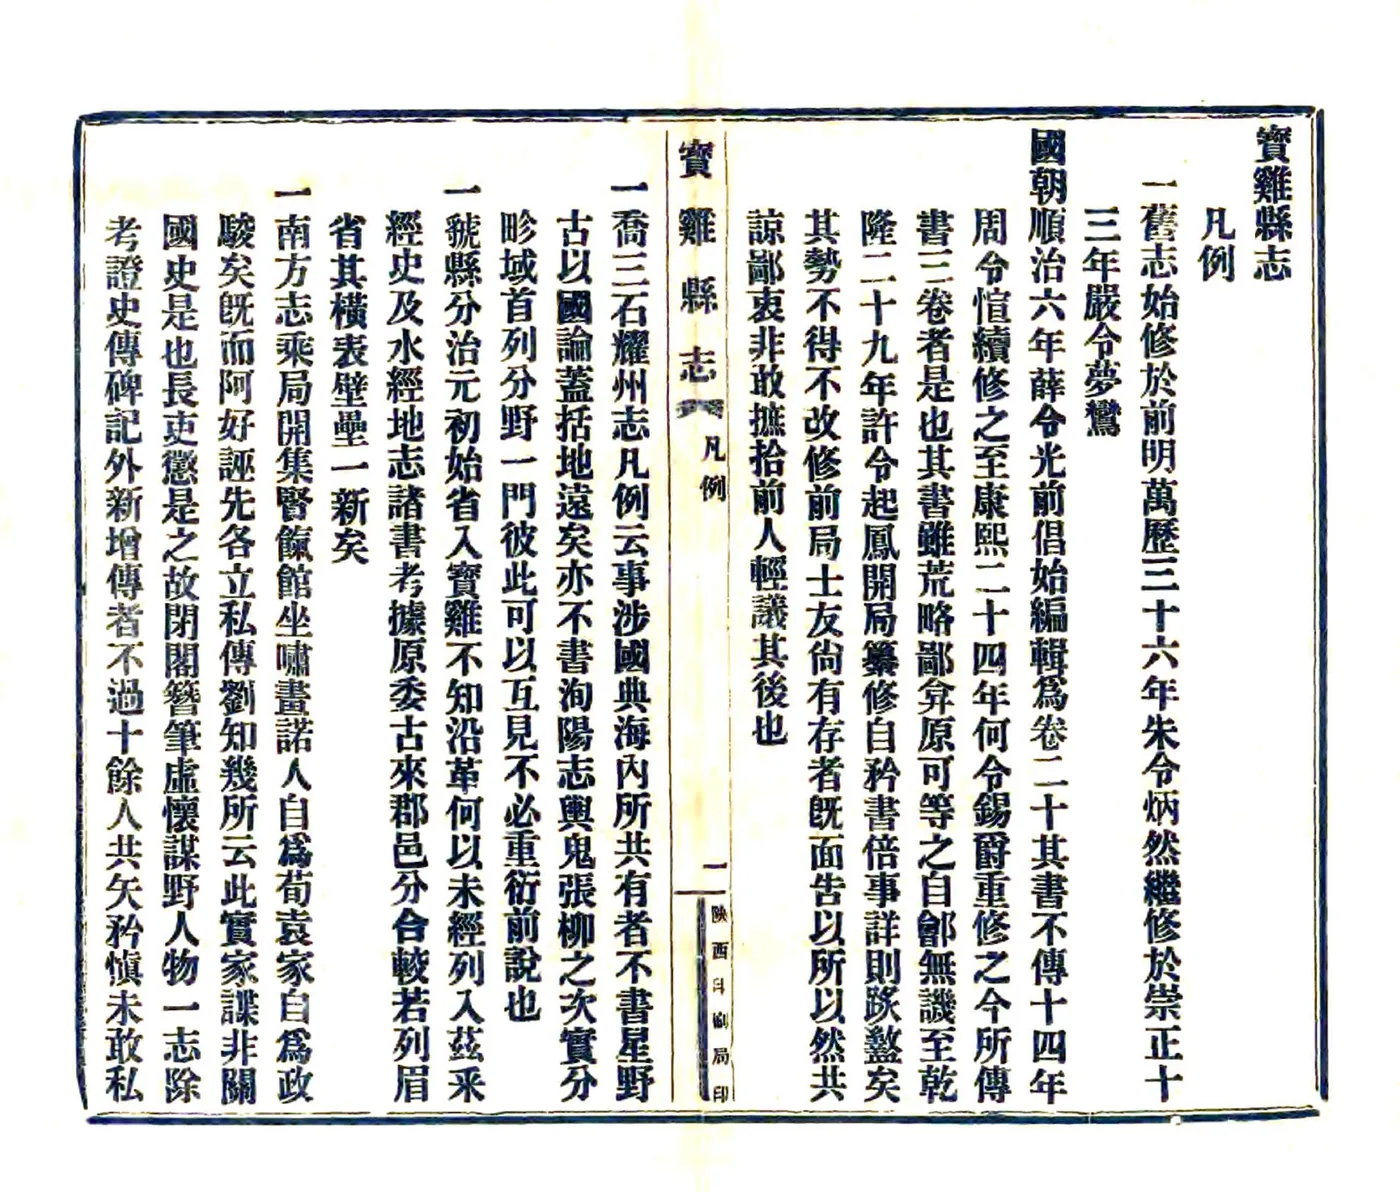 寶雞縣志
凡例
一舊志始修於前明萬歷三十六年朱令炳然繼修於崇正十
三年嚴令夢鸞
國朝順治六年薛令光前倡始編輯爲卷二十其書不傳十四年
周令愃續修之至康熙二十四年何令錫爵重修之今所傳
書三卷者是也其書雖荒略鄙弇原可等之自鄶無譏至乾
隆二十九年許令起鳳開局纂修自矜書倍事詳則踳盭矣
其勢不得不改修前局士友尙有存者旣面告以所以然共
諒鄙衷非敢摭拾前人輕議其後也
寶雞縣志 凡例 一 陝西印刷局印
一喬三石耀州志凡例云事涉國典海內所共有者不書星野
古以國論蓋括地遠矣亦不書洵陽志輿鬼張柳之次實分
畛域首列分野一門彼此可以互見不必重衍前說也
一虢縣分治元初始省入寶雞不知沿革何以未經列入茲采
經史及水經地志諸書考據原委古來郡邑分合較若列眉
省其橫表壁壘一新矣
一南方志乘局開集賢餼館坐嘯畫諾人自爲荀袁家自爲政
駿矣旣而阿好誣先各立私傳劉知幾所云此實家諜非關
國史是也長吏懲是之故閉閣簪筆虛懷謀野人物一志除
考證史傳碑記外新增傳者不過十餘人共矢矜愼未敢私